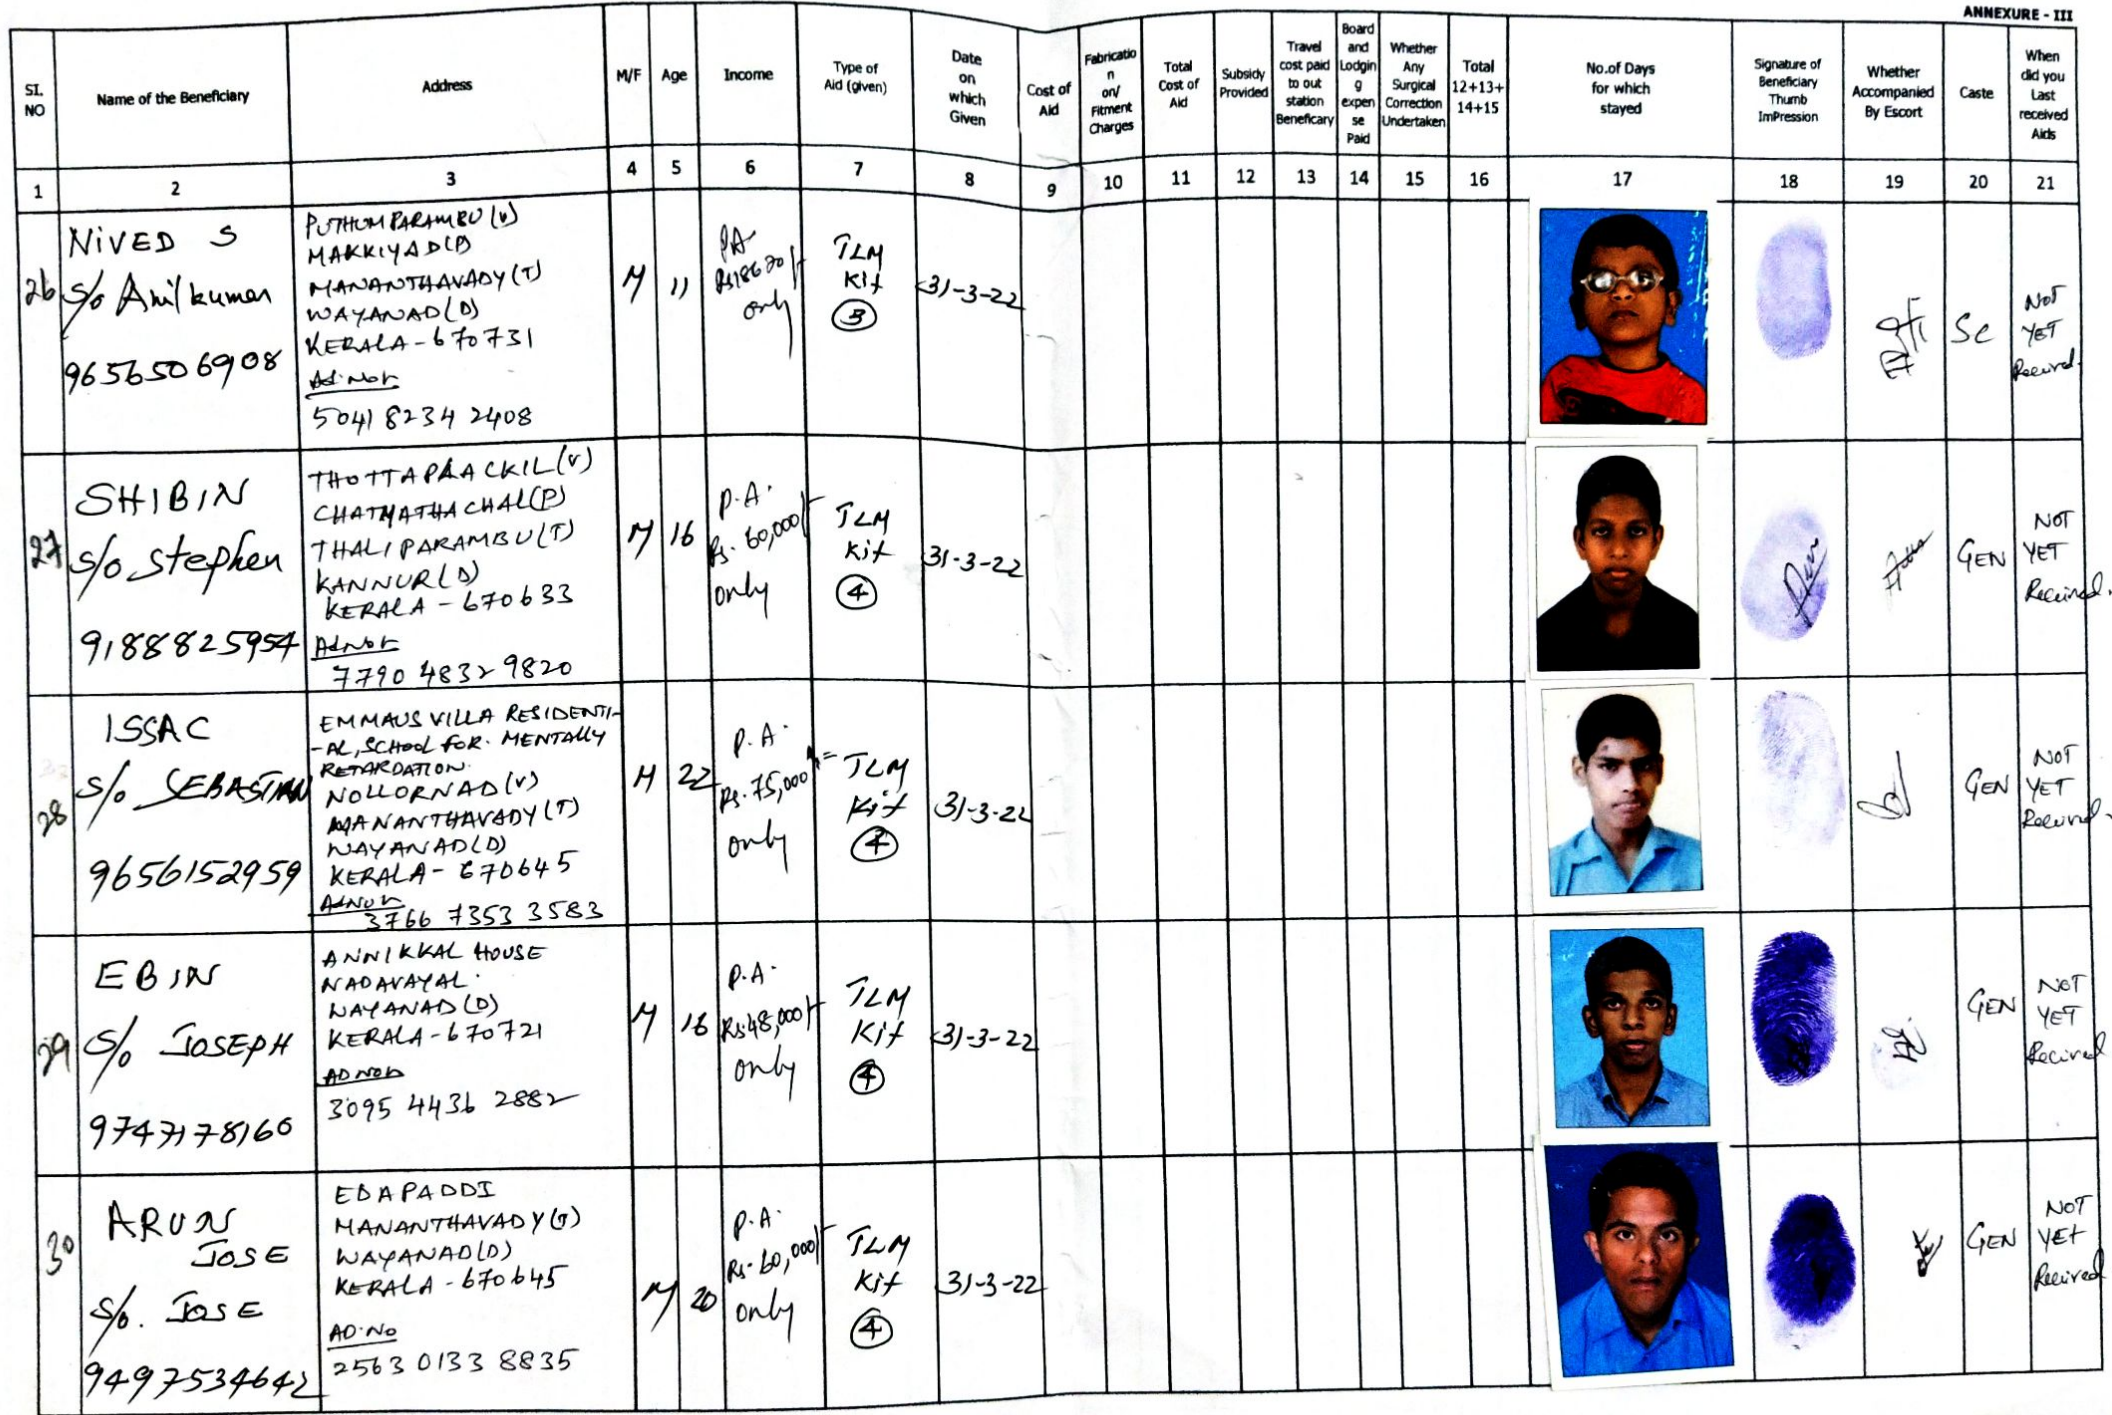 ANNEXURE - III
SI. NO
Name of the Beneficiary
Address
M/F
Age
Income
Type of
Aid (given)
Date
on
which
Given
Cost of
Aid
Fabricatio
n
on/
Fitment
Charges
Total
Cost of
Aid
Subsidy
Provided
Travel
cost paid
to out
station
Beneficary
Board
and
Lodgin
g
expen
se
Paid
Whether
Any
Surgical
Correction
Undertaken
Total
12+13+
14+15
No.of Days
for which
stayed
Signature of
Beneficiary
Thumb
ImPression
Whether
Accompanied
By Escort
Caste
When
did you
Last
received
Aids
1 2 3 4 5 6 7 8 9 10 11 12 13 14 15 16 17 18 19 20 21
26
NIVED S
S/o Anil kumar
9656506908
PUTHUMPARAMBU (V)
MAKKIYAD (P)
MANANTHAVADY (T)
WAYANAD (D)
KERALA - 670731
5041 8234 2408
M
11
PA
only
TLM
Kit
3
31-3-22
SC
NOT
YET
Received.
27
SHIBIN
S/o Stephen
9188825954
THOTTAPRACKIL (V)
CHATHATHACHAL (P)
THALIPARAMBU (T)
KANNUR (D)
KERALA - 670633
7790 4832 9820
M
16
P.A.
Rs. 60,000/-
only
TLM
Kit
4
31-3-22
GEN
NOT
YET
Received.
28
ISSAC
S/o SEBASTIAN
9656152959
EMMAUS VILLA RESIDENTI-
-AL, SCHOOL FOR. MENTALLY
RETARDATION.
NOLLORNAD (V)
MANANTHAVADY (T)
WAYANAD (D)
KERALA - 670645
3766 7353 3583
M
22
P.A.
Rs. 75,000/=
only
TLM
Kit
4
31-3-22
GEN
NOT
YET
Received.
29
EBIN
S/o JOSEPH
9747178160
ANNIKKAL HOUSE
NADAVAYAL.
WAYANAD (D)
KERALA - 670721
3095 4436 2882
M
P.A.
Rs 48,000/-
only
TLM
Kit
4
31-3-22
GEN
NOT
YET
Recived
30
ARUN
JOSE
S/o. JOSE
9497534642
EDAPADDI
MANANTHAVADY (T)
WAYANAD (D)
KERALA - 670645
AD.No
2563 0133 8835
M
20
P.A.
Rs. 60,000/-
only
TLM
Kit
4
31-3-22
GEN
NOT
YET
Received